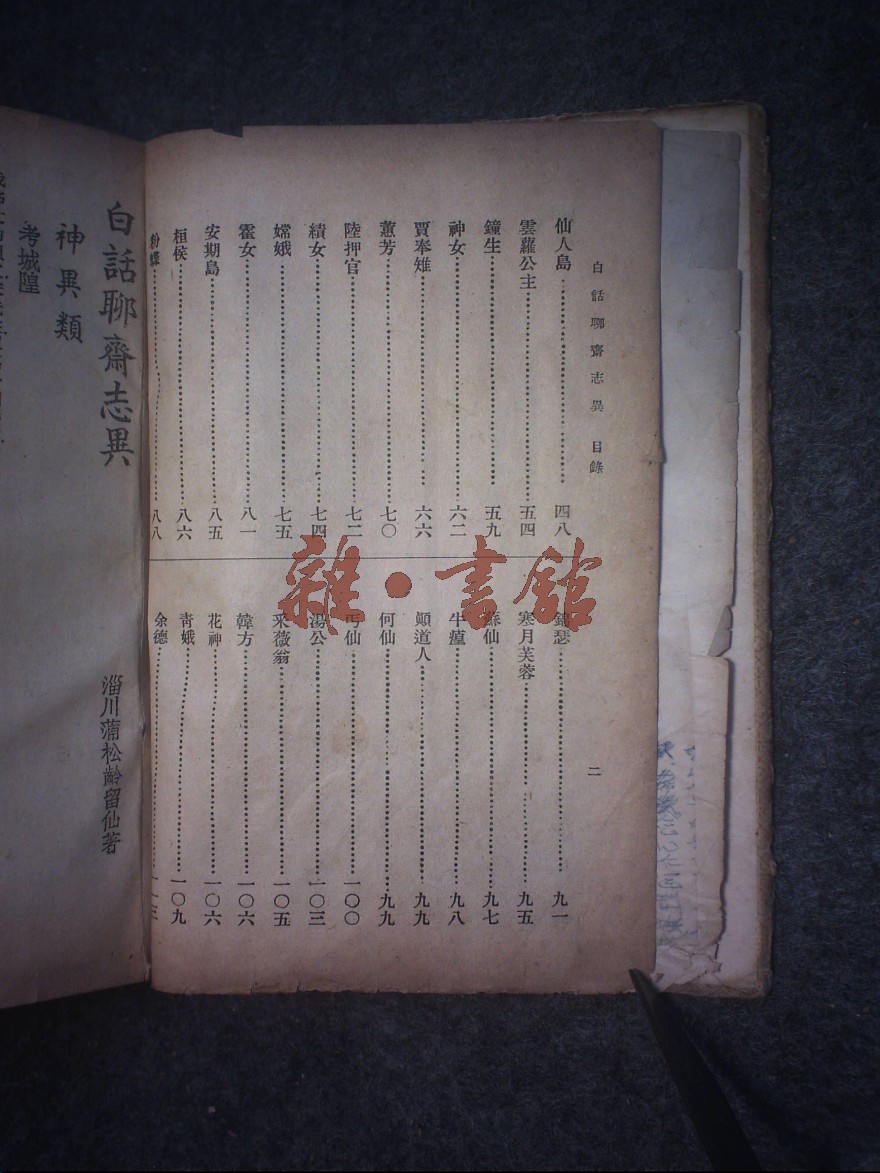 白話聊齋志異 目錄
二
仙人島 四八
雲蘿公主 五四
鐘生 五九
神女 六二
賈奉雉 六六
蕙芳 七〇
陸押官 七二
績女 七四
嫦娥 七五
霍女 八一
安期島 八五
桓侯 八六
粉蝶 八八
錦瑟 九一
寒月芙蓉 九五
蘇仙 九七
牛㾮 九八
顛道人 九九
何仙 九九
丐仙 一〇〇
湯公 一〇三
采薇翁 一〇五
韓方 一〇六
花神 一〇六
青娥 一〇九
余德 一一三
白話聊齋志異
淄川蒲松齡留仙著
神異類
考城隍
雜·書館